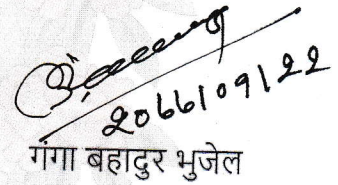 2066/09/22
गंगा बहादुर भुजेल